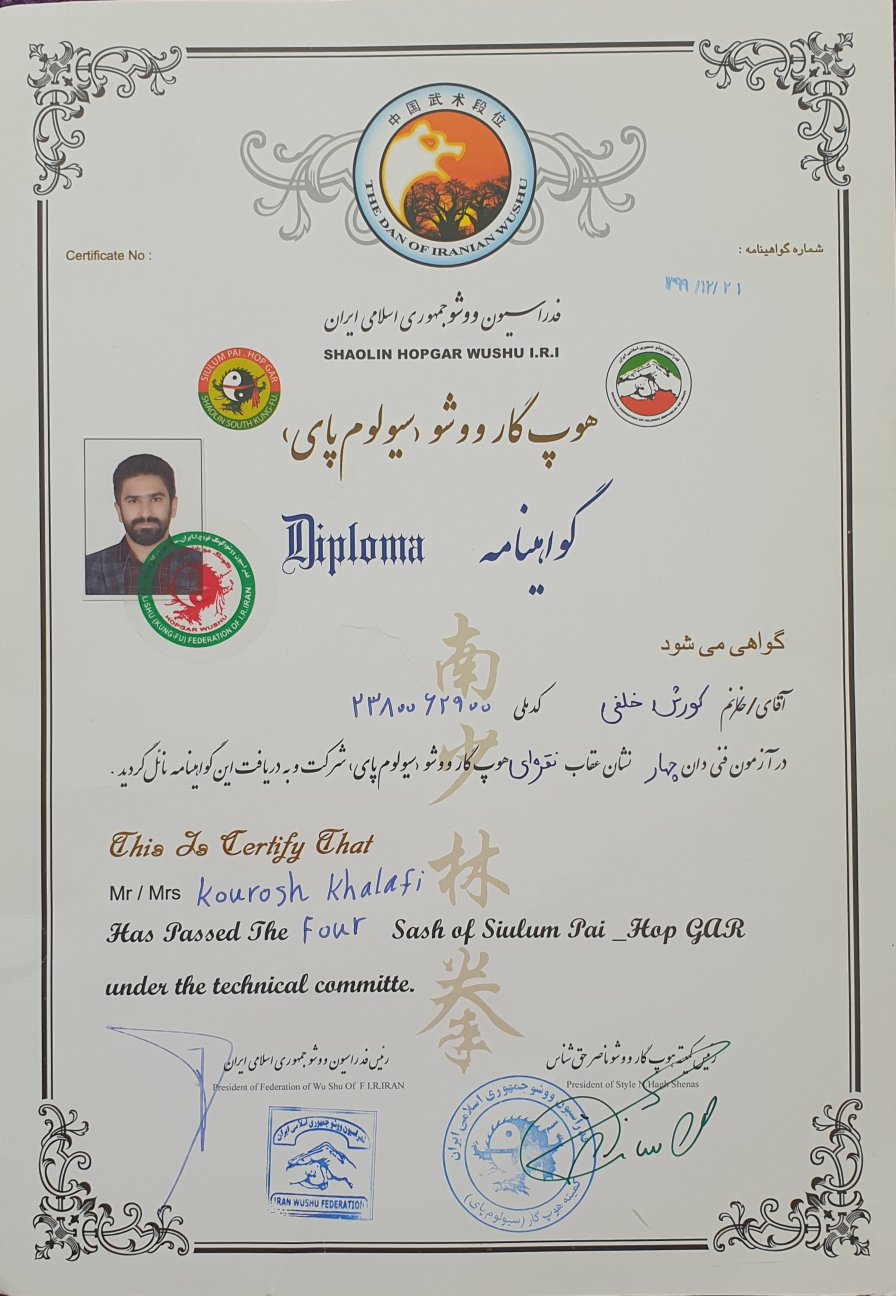 中国武术段位
THE DAN OF IRANIAN WUSHU
Certificate No :
شماره گواهینامه :
۱۳۹۹/۱۲/۲۱
فدراسیون ووشو جمهوری اسلامی ایران
SHAOLIN HOPGAR WUSHU I.R.I
SIULUM PAI . HOP GAR
SHAOLIN SOUTH KUNG-FU
هوپ گار ووشو (سیولوم پای)
Diploma
گواهینامه
HOPGAR WUSHU
WUSHU (KUNG-FU) FEDERATION OF I.R.IRAN
گواهی می شود
آقای/خانم کورش خلفی کدملی ۲۳۸۰۰۶۲۹۰۰
در آزمون فنی دان چهار نشان عقاب نقره‌ای هوپ گار ووشو (سیولوم پای) شرکت و به دریافت این گواهینامه نائل گردید .
南少林拳
This Is Certify That
Mr / Mrs Kourosh Khalafi
Has Passed The Four Sash of Siulum Pai _Hop GAR
under the technical committe.
رئیس فدراسیون ووشو جمهوری اسلامی ایران
President of Federation of Wu Shu Of F I.R.IRAN
رئیس کمیته هوپ گار ووشو ناصر حق شناس
President of Style N Hagh Shenas
فدراسیون ووشو جمهوری اسلامی ایران
IRAN WUSHU FEDERATION
فدراسیون ووشو جمهوری اسلامی ایران
کمیته هوپ گار (سیولوم پای)